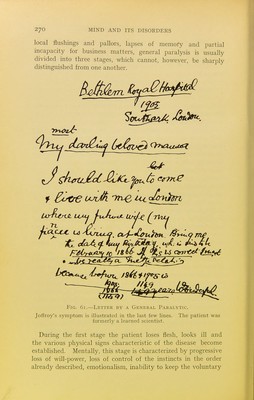 270 MIND AND ITS DISORDERS
local flushings and pallors, lapses of memory and partial
incapacity for business matters, general paralysis is usually
divided into three stages, which cannot, however, be sharply
distinguished from one another.
Bethlem Royal Hospital
1905
Southark, London.
most
My darling beloved mamma
I should like you to come
& live with me in London
where my future wife (my
is living, at London. Bring me,
the date of my Birthday, wh. is
February 1866 If is correct
really a
because between 1866 & 1905 is
1905
1866
years Wonderful
FIG. 61.—LETTER BY A GENERAL PARALYTIC.
Joffroy's symptom is illustrated in the last few lines. The patient was
formerly a learned scientist.
During the first stage the patient loses flesh, looks ill and
the various physical signs characteristic of the disease become
established. Mentally; this stage is characterized by progressive
loss of will-power, loss of control of the instincts in the order
already described, emotionalism, inability to keep the voluntary